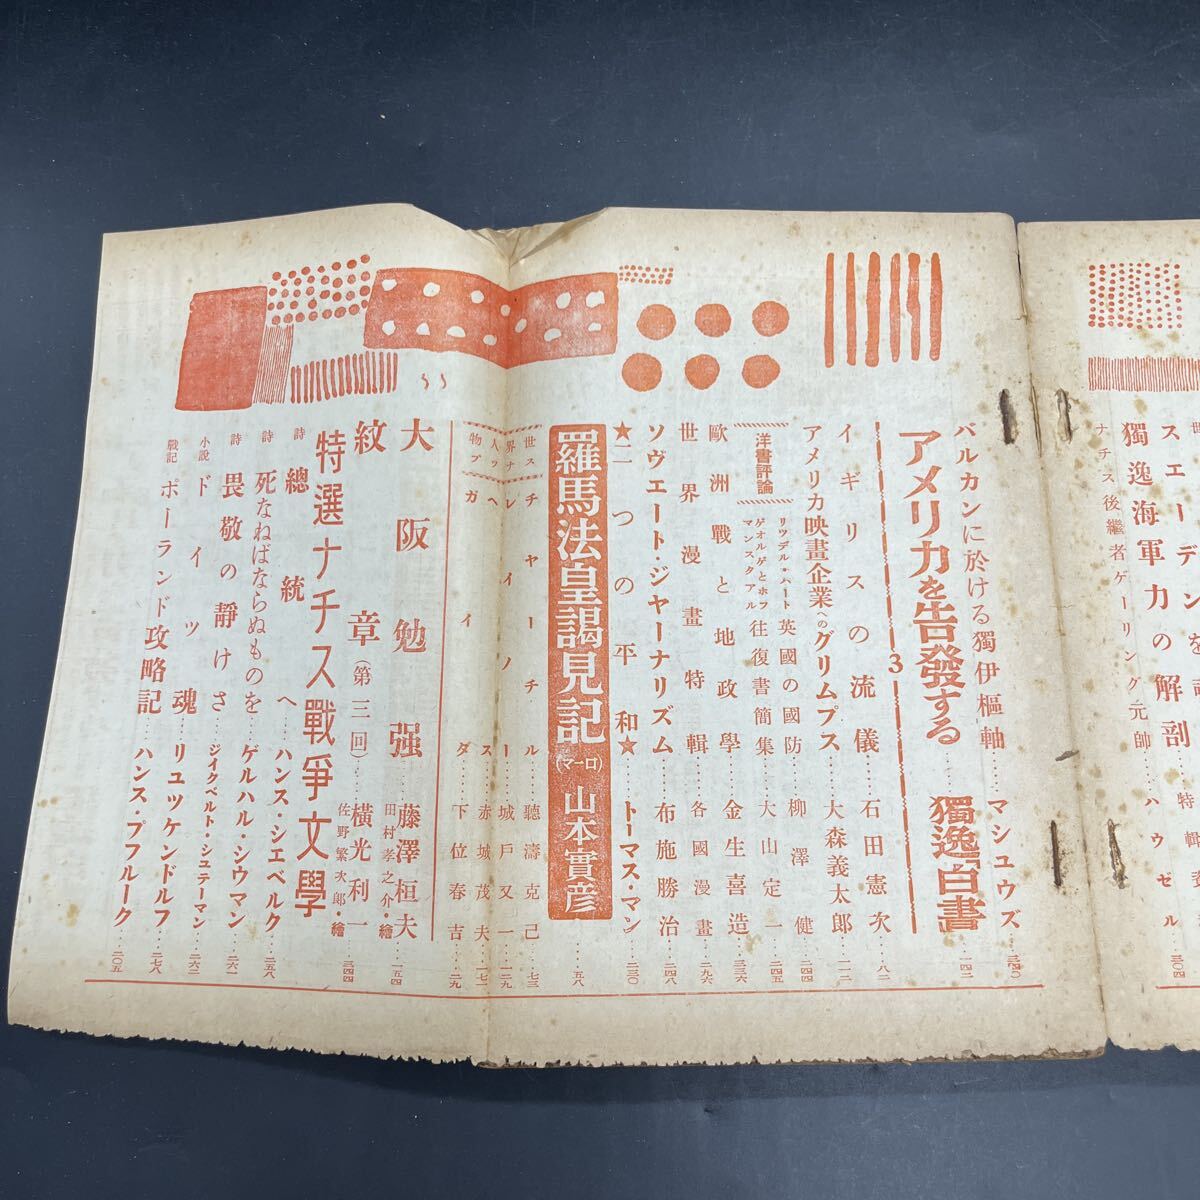 スエーデンを
獨逸海軍力の解剖
ナチス後繼者ゲーリング元帥……ハウゼル…三〇四
バルカンに於ける獨伊樞軸……マシユウズ…三四〇
アメリカを告發する
3
獨逸「白書」…一四二
イギリスの流儀……石田憲次…八二
アメリカ映畫企業へのグリムプス……大森義太郎…一一二
洋書評論
リツデル・ハート 英國の國防……柳澤健…二四四
ゲオルゲとホフマンスタアル 往復書簡集……大山定一…二四五
歐洲戰と地政學……金生喜造…三三六
世界漫畫特輯……各國漫畫…二九六
ソヴエート・ジヤーナリズム……布施勝治…二四八
★二つの平和★……トーマス・マン…二三〇
羅馬法皇謁見記(ローマ) 山本實彥…五八
世界人物
スナツプ
チヤーチル……聽濤克己…七三
レイノー……城戶又一…一二九
ヘーチス……赤城茂夫…一七一
ガイダ……下位春吉…二九
大阪勉强……藤澤桓夫…一五四
田村孝之介・繪
紋章(第三回)……橫光利一…三四四
佐野繁次郎・繪
特選ナチス戰爭文學
詩 總統へ……ハンス・シエベルク…二五八
詩 死なねばならぬものを……ゲルハル・シウマン…二六一
詩 畏敬の靜けさ……ジイクベルト・シユテーマン…二六二
小說 ドイツ魂……リユツケンドルフ…二七八
戰記 ポーランド攻略記……ハンス・プフルーク…二〇五